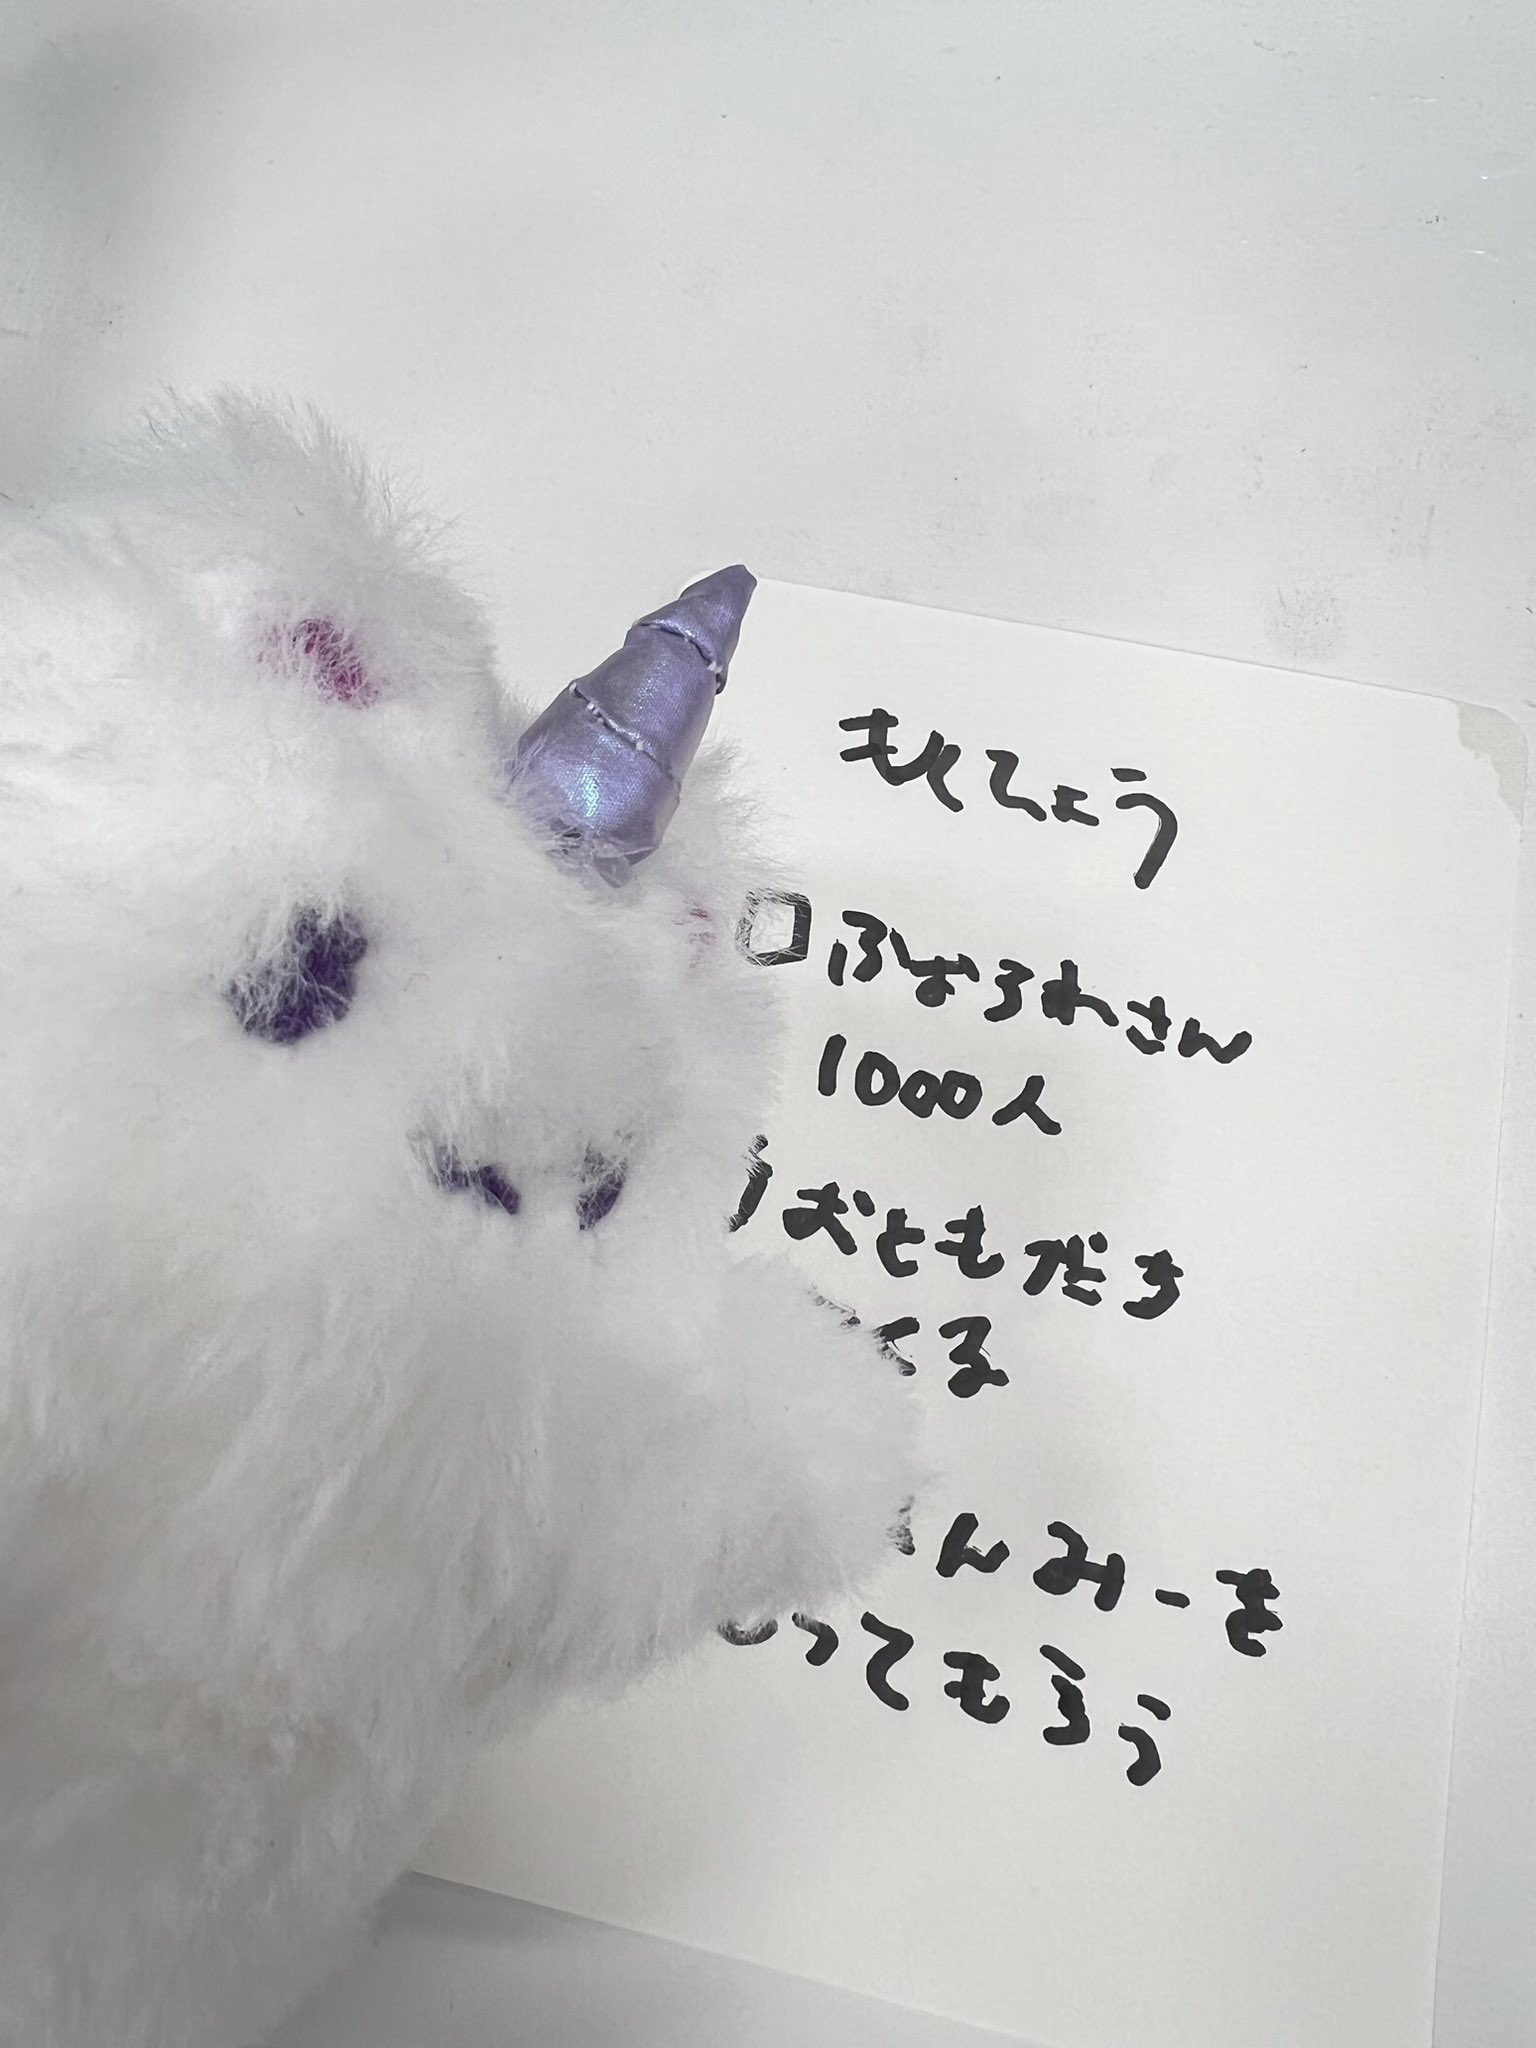 もくひょう
ふぉろわさん
1000人
おともだち
くる
んみーを
ってもらう